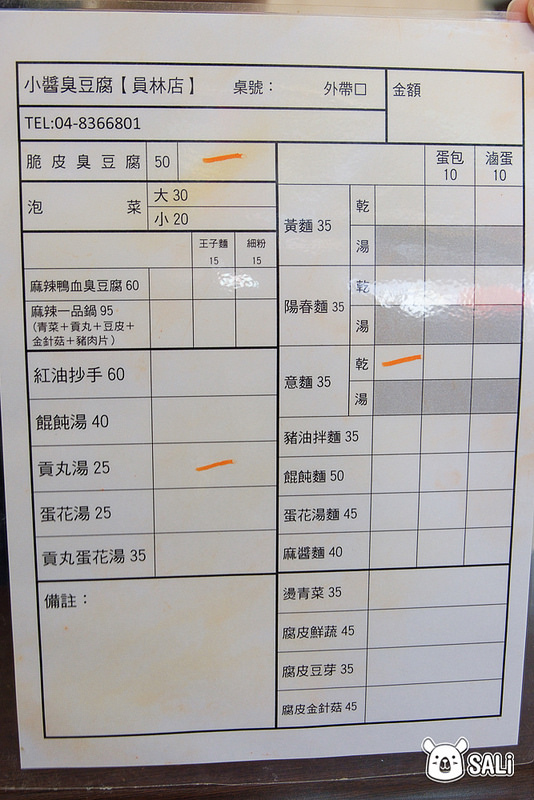 小醬臭豆腐【員林店】 桌號： 外帶□ 金額
TEL:04-8366801
脆皮臭豆腐 50
泡菜 大 30
小 20
王子麵 15 細粉 15
麻辣鴨血臭豆腐 60
麻辣一品鍋 95
（青菜＋貢丸＋豆皮＋
金針菇＋豬肉片）
紅油抄手 60
餛飩湯 40
貢丸湯 25
蛋花湯 25
貢丸蛋花湯 35
備註：
蛋包 10 滷蛋 10
黃麵 35 乾
湯
陽春麵 35 乾
湯
意麵 35 乾
湯
豬油拌麵 35
餛飩麵 50
蛋花湯麵 45
麻醬麵 40
燙青菜 35
腐皮鮮蔬 45
腐皮豆芽 35
腐皮金針菇 45
SALi